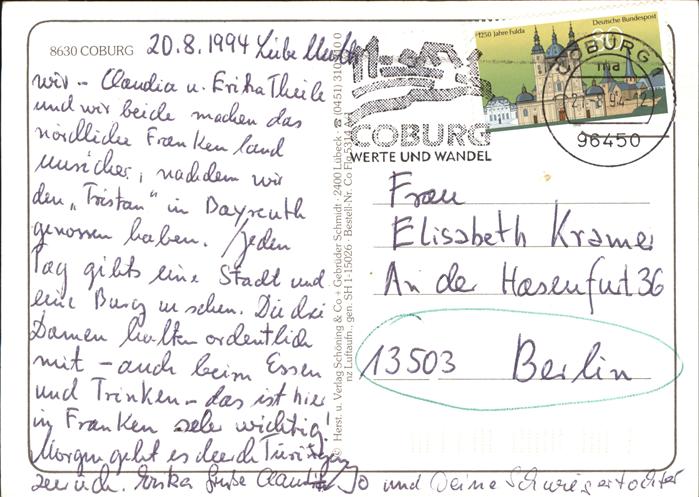 8630 COBURG
20.8.1994 Liebe Mutti
wir - Claudia u. Erika Theile
und wir beide machen das
nördliche Franken land
unsicher, nachdem wir
den „Tristan" in Bayreuth
genossen haben. Jeden
Tag gibts eine Stadt und
eine Burg zu sehen. Die drei
Damen halten ordentlich
mit - auch beim Essen
und Trinken - das ist hier
in Franken sehr wichtig!
Morgen geht es durch Thüringen
zurück. Erika Grüße Claudia Jo und Deine Schwiegertochter
© Herst. u. Verlag Schöning & Co + Gebrüder Schmidt · 2400 Lübeck · ☎ (0451) 31
nz Luftaufn., gen. SH 1-15026 · Bestell-Nr. Co Flg 5314
1250 Jahre Fulda
Deutsche Bundespost
80
COBURG
WERTE UND WANDEL
COBURG 1
ma
96450
Frau
Elisabeth Kramer
An der Hasenfurt 36
13503 Berlin